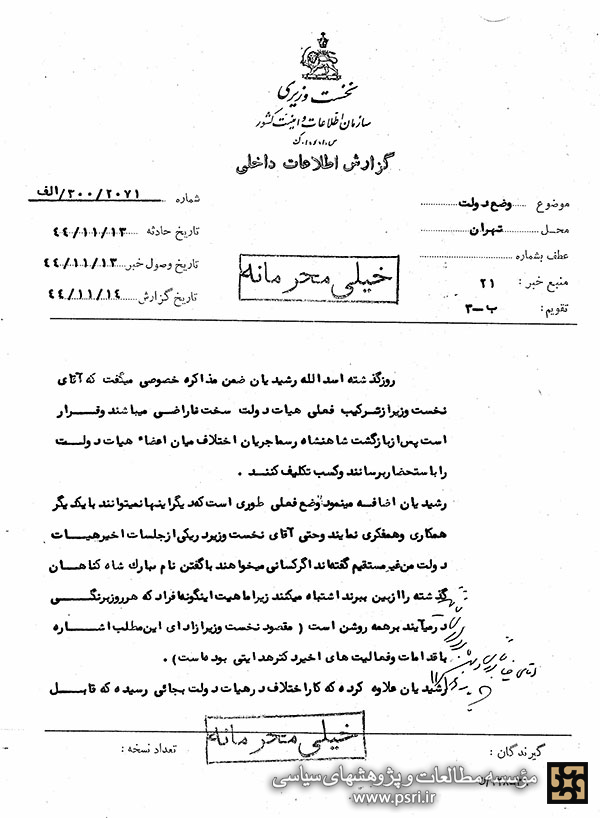 نخست وزیری
سازمان اطلاعات و امنیت کشور
س.ا.و.ا.ک
گزارش اطلاعات داخلی
موضوع وضع دولت
شماره ۳۰۰/۲۰۷۱/الف
محل تهران
تاریخ حادثه ۴۴/۱۱/۱۳
عطف بشماره
تاریخ وصول خبر ۴۴/۱۱/۱۳
منبع خبر: ۲۱
تاریخ گزارش ۴۴/۱۱/۱۴
تقویم: ب-۳
خیلی محرمانه
روز گذشته اسدالله رشیدیان ضمن مذاکره خصوصی میگفت که آقای
نخست وزیر از ترکیب فعلی هیات دولت سخت ناراضی میباشند و قرار
است پس از بازگشت شاهنشاه رسما جریان اختلاف میان اعضاء هیات دولت
را باستحضار برسانند و کسب تکلیف کنند.
رشیدیان اضافه مینمود وضع فعلی طوری است که دیگر اینها نمیتوانند با یکدیگر
همکاری و همفکری نمایند و حتی آقای نخست وزیر در یکی از جلسات اخیر هیات
دولت من غیر مستقیم گفته‌اند اگر کسانی میخواهند با گفتن نام مبارک شاه گناهان
گذشته را از بین ببرند اشتباه میکنند زیرا ماهیت اینگونه افراد که هر روز برنگی
در میآیند بر همه روشن است (مقصود نخست وزیر از ادای این مطلب اشاره
باقدامات و فعالیت های اخیر دکتر هدایتی بوده است).
رشیدیان علاوه کرده که کار اختلاف در هیات دولت بجائی رسیده که قابل
خیلی محرمانه
گیرندگان:
تعداد نسخه:
مؤسسه مطالعات و پژوهشهای سیاسی
www.psri.ir